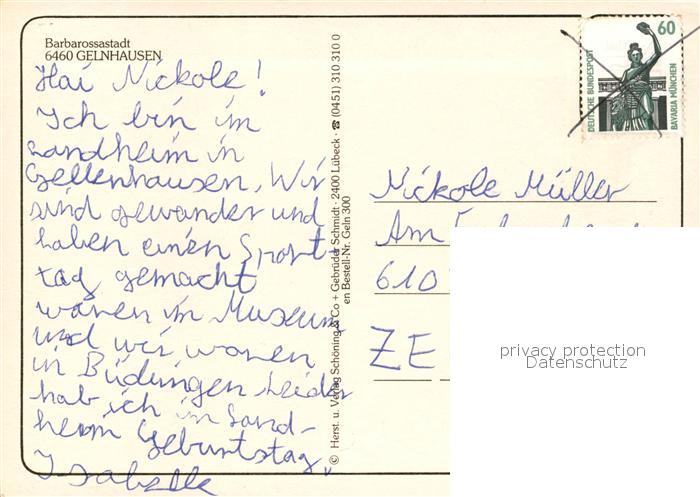 Barbarossastadt
6460 GELNHAUSEN
Hai Nickole!
Ich bin im
Landheim in
Gellenhausen. Wir
sind gewander und
haben einen Sport-
tag gemacht
waren im Museum
und wir waren
in Büdungen Leider
hab ich im Land-
heim Geburtstag.
Isabelle
© Herst. u. Verlag Schöning & Co + Gebrüder Schmidt · 2400 Lübeck · ☎ (0451) 310 310 0
en Bestell-Nr. Geln 300
60
DEUTSCHE BUNDESPOST
BAVARIA MÜNCHEN
Nickole Müller
Am
610
ZE
privacy protection
Datenschutz